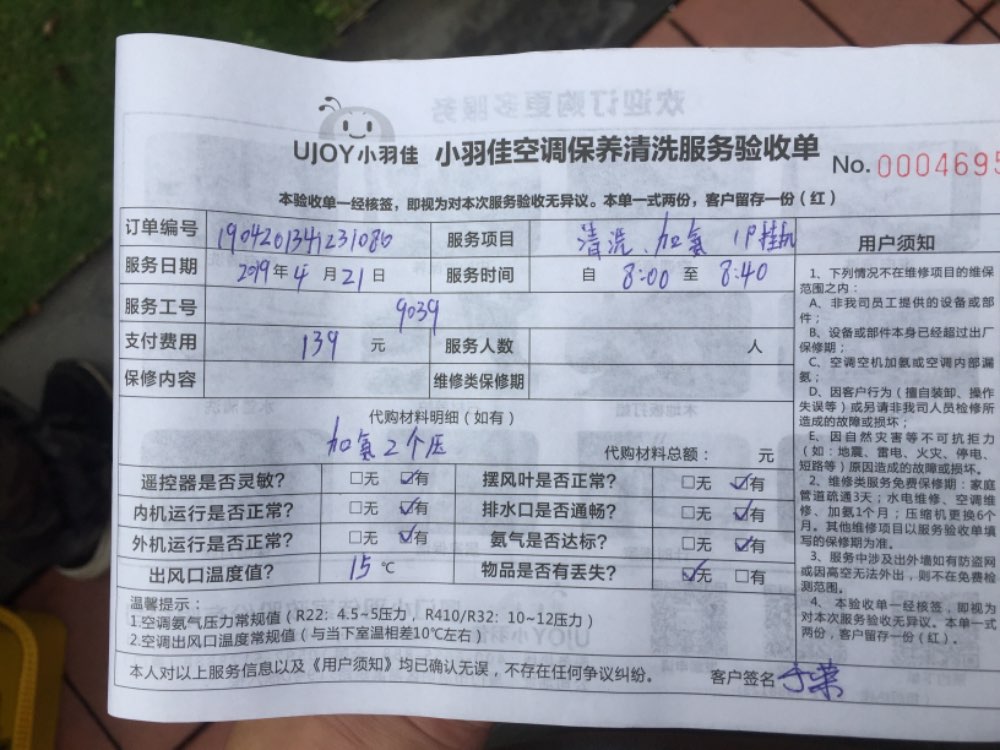 UJOY小羽佳 小羽佳空调保养清洗服务验收单 No. 0004695
本验收单一经核签，即视为对本次服务验收无异议。本单一式两份，客户留存一份（红）
订单编号 1904201341231086 服务项目 清洗、加氨 1P挂机
服务日期 2019年4月21日 服务时间 自 8:00 至 8:40
服务工号 9039
支付费用 139 元 服务人数 人
保修内容 维修类保修期
代购材料明细（如有）
加氨2个压 代购材料总额： 元
遥控器是否灵敏？ □无 ☑有 摆风叶是否正常？ □无 ☑有
内机运行是否正常？ □无 ☑有 排水口是否通畅？ □无 ☑有
外机运行是否正常？ □无 ☑有 氨气是否达标？ □无 ☑有
出风口温度值？ 15 ℃ 物品是否有丢失？ ☑无 □有
温馨提示：
1.空调氨气压力常规值（R22：4.5~5压力，R410/R32：10~12压力）
2.空调出风口温度常规值（与当下室温相差10℃左右）
本人对以上服务信息以及《用户须知》均已确认无误，不存在任何争议纠纷。 客户签名
用户须知
1、下列情况不在维修项目的维保
范围之内：
A、非我司员工提供的设备或部
件；
B、设备或部件本身已经超过出厂
保修期；
C、空调空机加氨或空调内部漏
氨；
D、因客户行为（擅自装卸、操作
失误等）或另请非我司人员检修所
造成的故障或损坏；
E、因自然灾害等不可抗拒力
（如：地震、雷电、火灾、停电、
短路等）原因造成的故障或损坏。
2、维修类服务免费保修期：家庭
管道疏通3天；水电维修、空调维
修、加氨1个月；压缩机更换6个
月。其他维修项目以服务验收单填
写的保修期为准。
3、服务中涉及出外墙如有防盗网
或因高空无法外出，则不在免费检
测范围。
4、本验收单一经核签，即视为
对本次服务验收无异议。本单一式
两份，客户留存一份（红）。